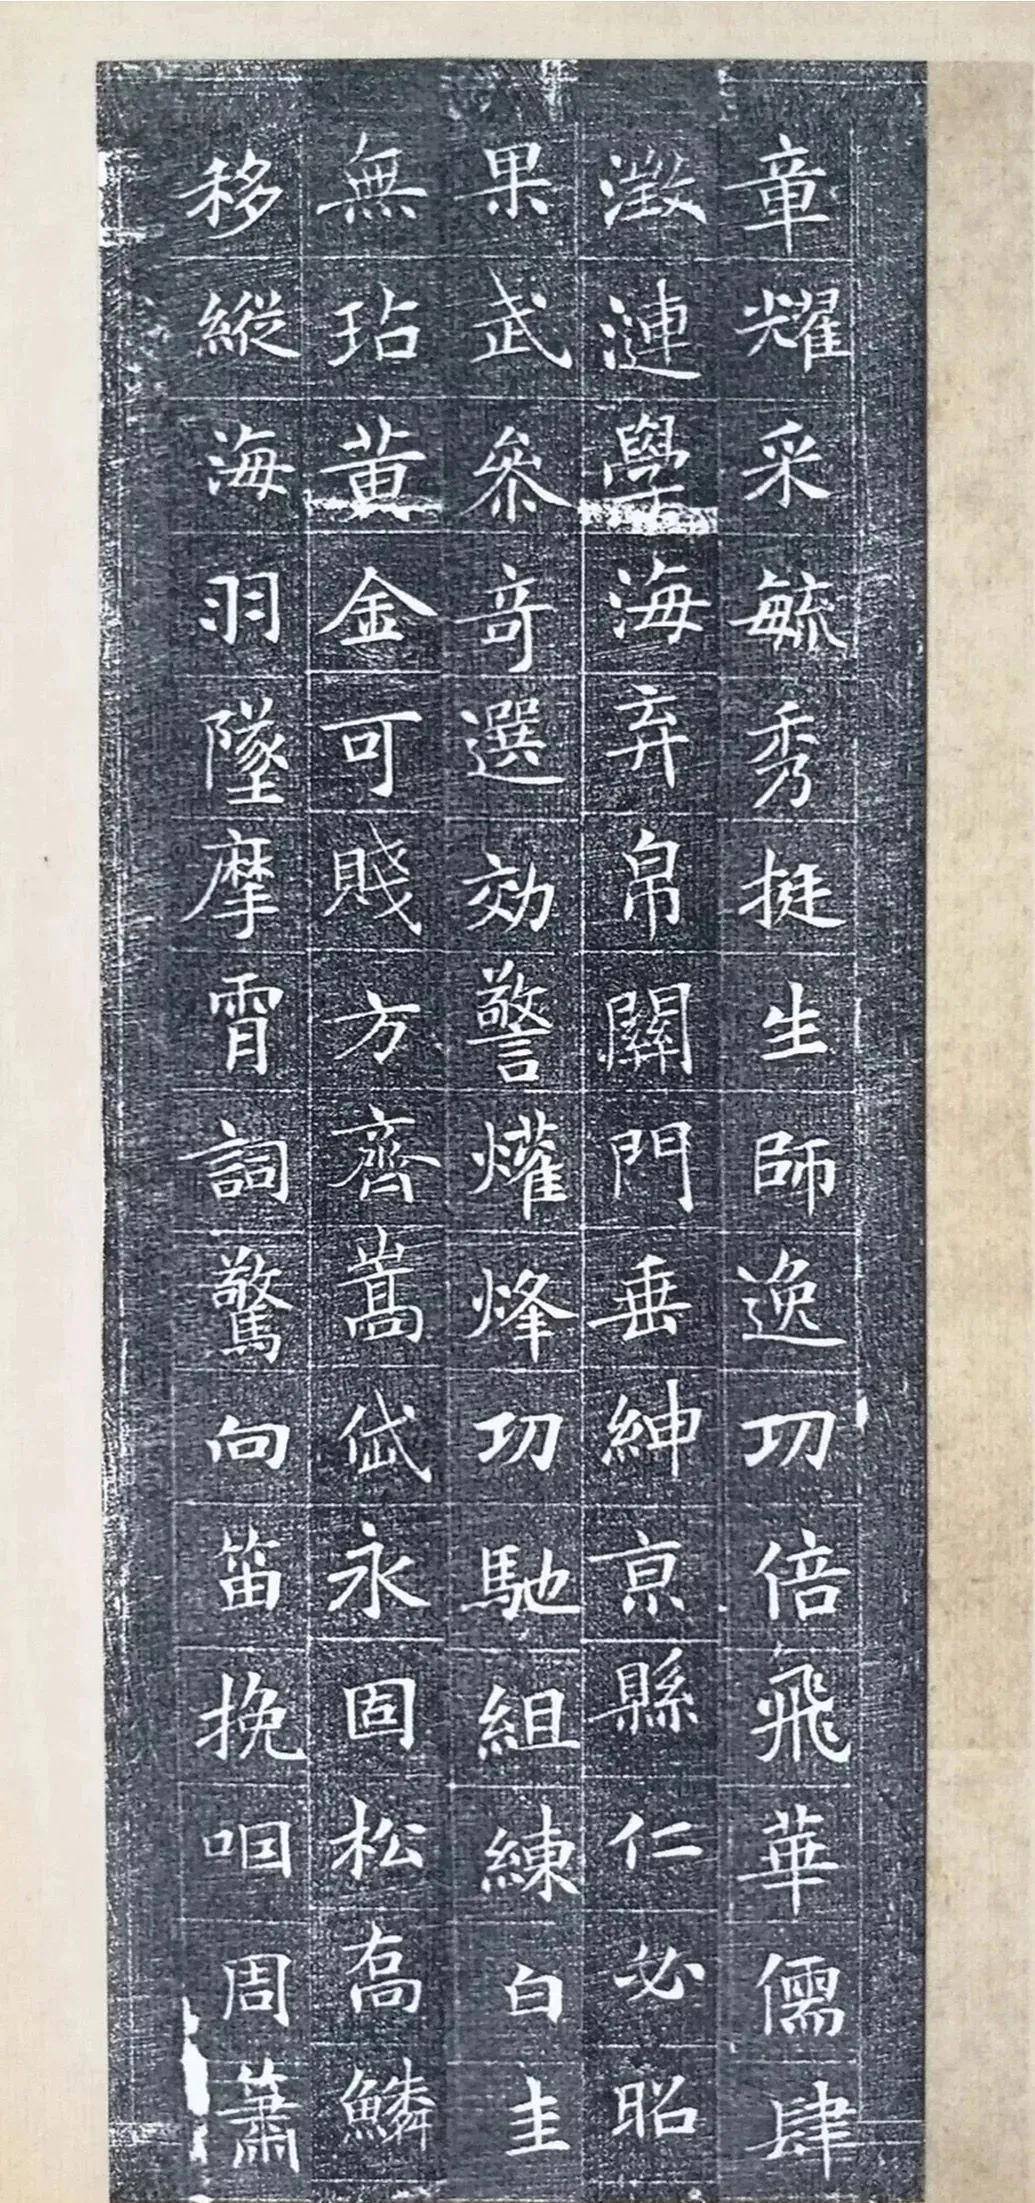 章耀采毓秀挺生師逸功倍飛華儒肆
澂漣學海弃帛關門垂紳京縣仁必昭
果武參奇選効警爟烽功馳組練白圭
無玷黃金可賤方齊嵩岱永固松高鱗
移縱海羽墜摩霄詞驚向笛挽咽周簫